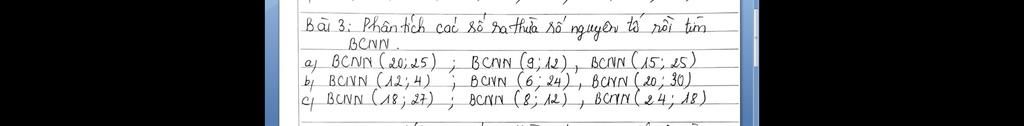 Bài 3: Phân tích các số ra thừa số nguyên tố rồi tìm
BCNN.
a) BCNN (20; 25) ; BCNN (9; 12), BCNN (15; 25)
b) BCNN (12; 4) ; BCNN (6; 24), BCNN (20; 30)
c) BCNN (18; 27) ; BCNN (8; 12), BCNN (24; 18)